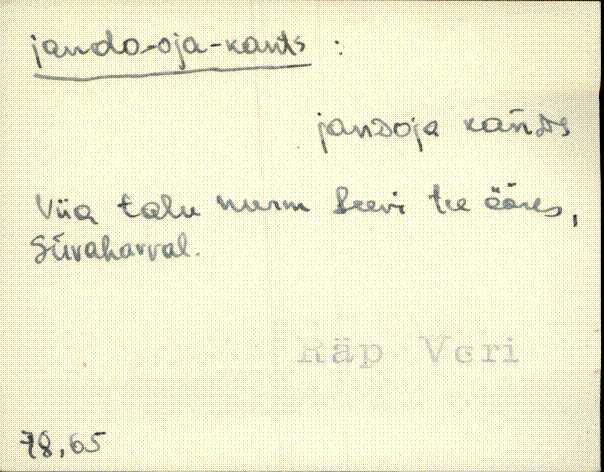 jando-oja-kants :
jandoja kańds
Viia talu nurm Leevi tee ääres,
Süvaharval.
Räp Veri
78,65